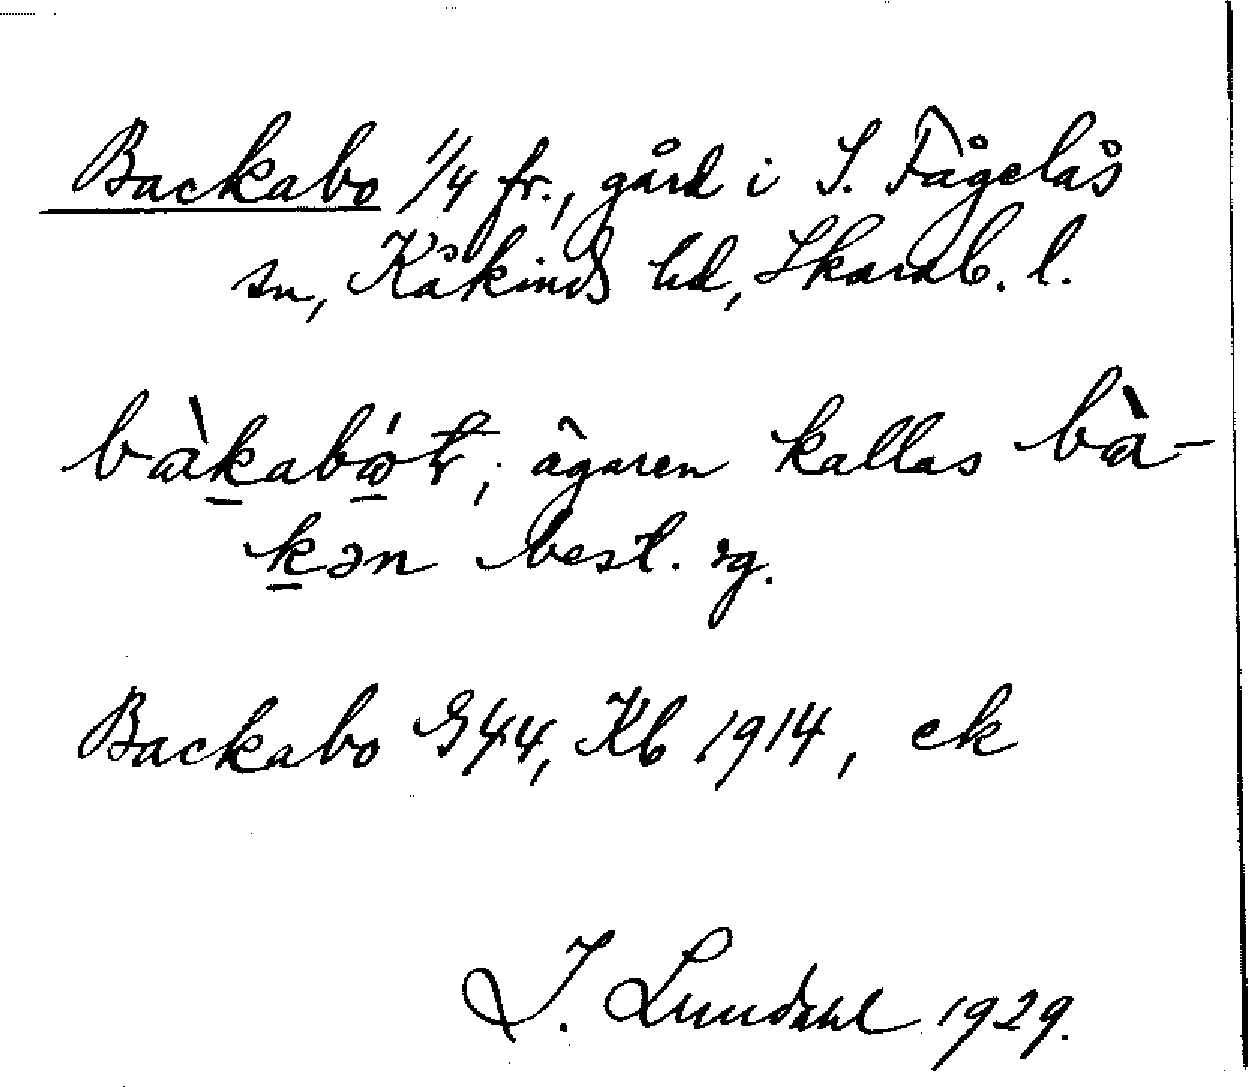 Backabo 1/4 fr., gård i S. Fågelås
sn, Kåkinds hd, Skarab. l.
bàkabót; ägaren kallas bà-
kən best. sg.
Backabo G44, Kb 1914, ek
I. Lundahl 1929.